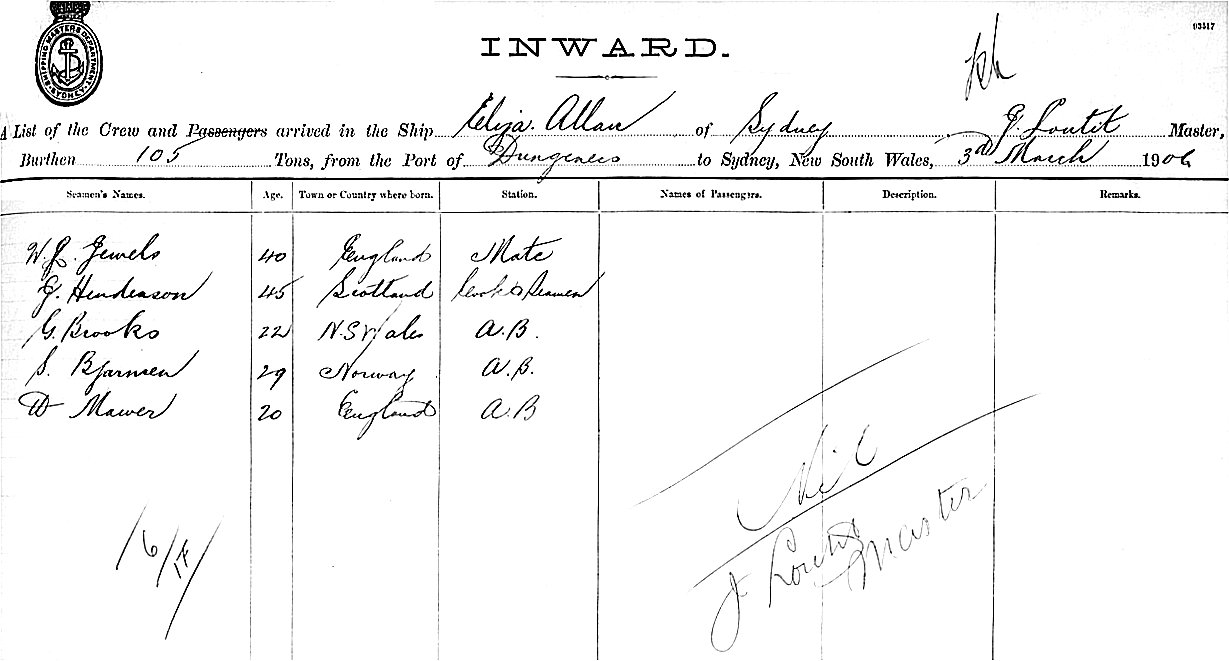 SHIPPING MASTERS DEPARTMENT SYDNEY
03517
INWARD.
A List of the Crew and Passengers arrived in the Ship Eliza Allan of Sydney J. Loutit Master,
Burthen 105 Tons, from the Port of Dungeness to Sydney, New South Wales, 3rd March 1906
Seamen's Names. Age. Town or Country where born. Station. Names of Passengers. Description. Remarks.
W. J. Jewels 40 England Mate
G. Henderson 45 Scotland Cook & Seamen
G. Brooks 22 N.S Wales A.B.
S. Bjarnsen 29 Norway A.B.
W Mawer 20 England A.B
Nil
J Loutit
Master